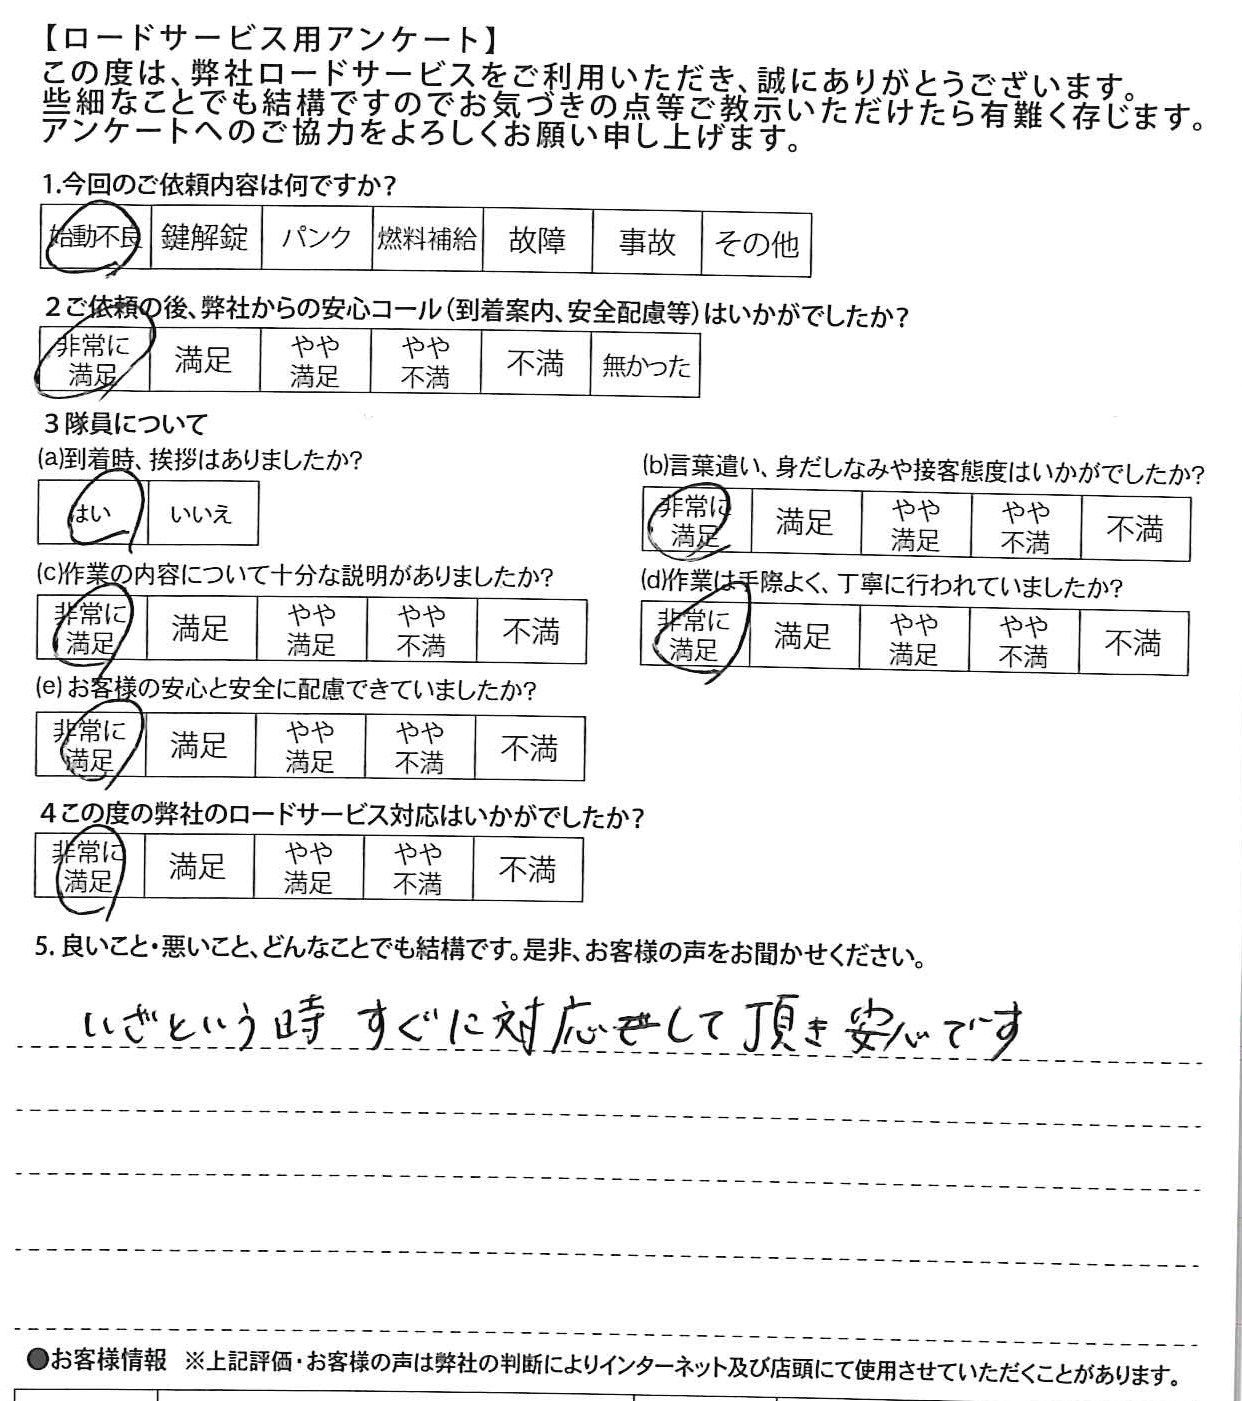 【ロードサービス用アンケート】
この度は、弊社ロードサービスをご利用いただき、誠にありがとうございます。
些細なことでも結構ですのでお気づきの点等ご教示いただけたら有難く存じます。
アンケートへのご協力をよろしくお願い申し上げます。
1.今回のご依頼内容は何ですか?
始動不良 鍵解錠 パンク 燃料補給 故障 事故 その他
2ご依頼の後、弊社からの安心コール(到着案内、安全配慮等)はいかがでしたか?
非常に満足 満足 やや満足 やや不満 不満 無かった
3隊員について
(a)到着時、挨拶はありましたか?
はい いいえ
(b)言葉遣い、身だしなみや接客態度はいかがでしたか?
非常に満足 満足 やや満足 やや不満 不満
(c)作業の内容について十分な説明がありましたか?
非常に満足 満足 やや満足 やや不満 不満
(d)作業は手際よく、丁寧に行われていましたか?
非常に満足 満足 やや満足 やや不満 不満
(e)お客様の安心と安全に配慮できていましたか?
非常に満足 満足 やや満足 やや不満 不満
4この度の弊社のロードサービス対応はいかがでしたか?
非常に満足 満足 やや満足 やや不満 不満
5.良いこと・悪いこと、どんなことでも結構です。是非、お客様の声をお聞かせください。
いざという時 すぐに対応して頂き安心です
●お客様情報 ※上記評価・お客様の声は弊社の判断によりインターネット及び店頭にて使用させていただくことがあります。